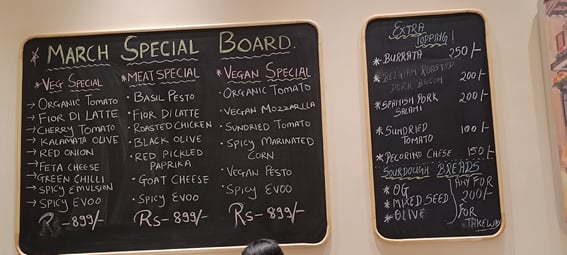 * MARCH SPECIAL BOARD.
* VEG SPECIAL
→ ORGANIC TOMATO
→ FIOR DI LATTE
→ CHERRY TOMATO
→ KALAMATA OLIVE
→ RED ONION
→ FETA CHEESE
→ GREEN CHILLI
→ SPICY EMULSION
→ SPICY EVOO
Rs-899/-
* MEAT SPECIAL
• BASIL PESTO
• FIOR DI LATTE
• ROASTED CHICKEN
• BLACK OLIVE
• RED PICKLED
PAPRIKA
• GOAT CHEESE
• SPICY EVOO
Rs-899/-
* VEGAN SPECIAL
• ORGANIC TOMATO
• VEGAN MOZZARLLA
• SUNDRIED TOMATO
• SPICY MARINATED
CORN
• VEGAN PESTO
• SPICY EVOO
Rs-899/-
EXTRA
TOPPING!
* BURRATA 250/-
* BELGIAN ROASTED
PORK BACON 200/-
* SPANISH PORK
SALAMI 200/-
* SUNDRIED
TOMATO 100/-
* PECORINO CHESE 150/-
SOURDOUGH BREADS
* OG
* MIXED SEED
* OLIVE
ANY FOR
200/-
FOR